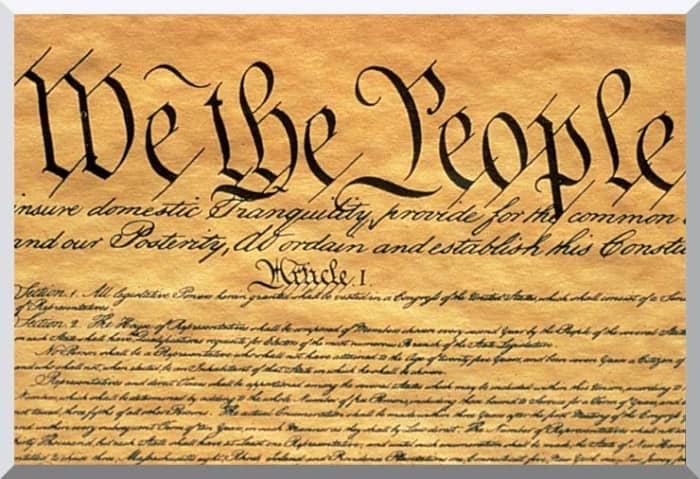 We the People
insure domestic Tranquility, provide for the common
and our Posterity, do ordain and establish this Constit
Article. I.
Section. 1. All legislative Powers herein granted shall be vested in a Congress of the United States, which shall consist of a Sen
of Representatives.
Section. 2. The House of Representatives shall be composed of Members chosen every second Year by the People of the several States
in each State shall have the Qualifications requisite for Electors of the most numerous Branch of the State Legislature.
No Person shall be a Representative who shall not have attained to the Age of twenty five Years, and been seven Years a Citizen of
and who shall not, when elected, be an Inhabitant of that State in which he shall be chosen.
Representatives and direct Taxes shall be apportioned among the several States which may be included within this Union, according to
Numbers, which shall be determined by adding to the whole Number of free Persons, including those bound to Service for a Term of Years,
not taxed, three fifths of all other Persons. The actual Enumeration shall be made within three Years after the first Meeting of the Congress
within every subsequent Term of ten Years, in such Manner as they shall by Law direct. The Number of Representatives shall not
thirty Thousand, but each State shall have at Least one Representative; and until such enumeration shall be made, the State of New Hamp
entitled to chuse three, Massachusetts eight, Rhode Island and Providence Plantations one, Connecticut five, New York six, New Jersey